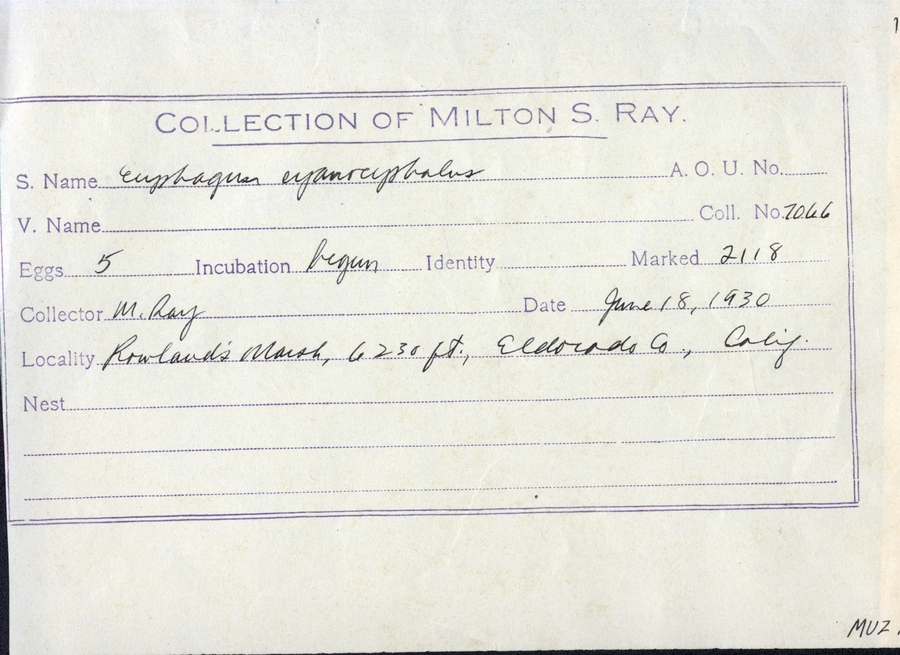 COLLECTION OF MILTON S. RAY.
S. Name Euphagus cyanocephalus A. O. U. No.
V. Name Coll. No. 7066
Eggs 5 Incubation begun Identity Marked 2118
Collector M. Ray Date June 18, 1930
Locality Rowland's Marsh, 6230 ft., Eldorado Co., Calif.
Nest
MUZ